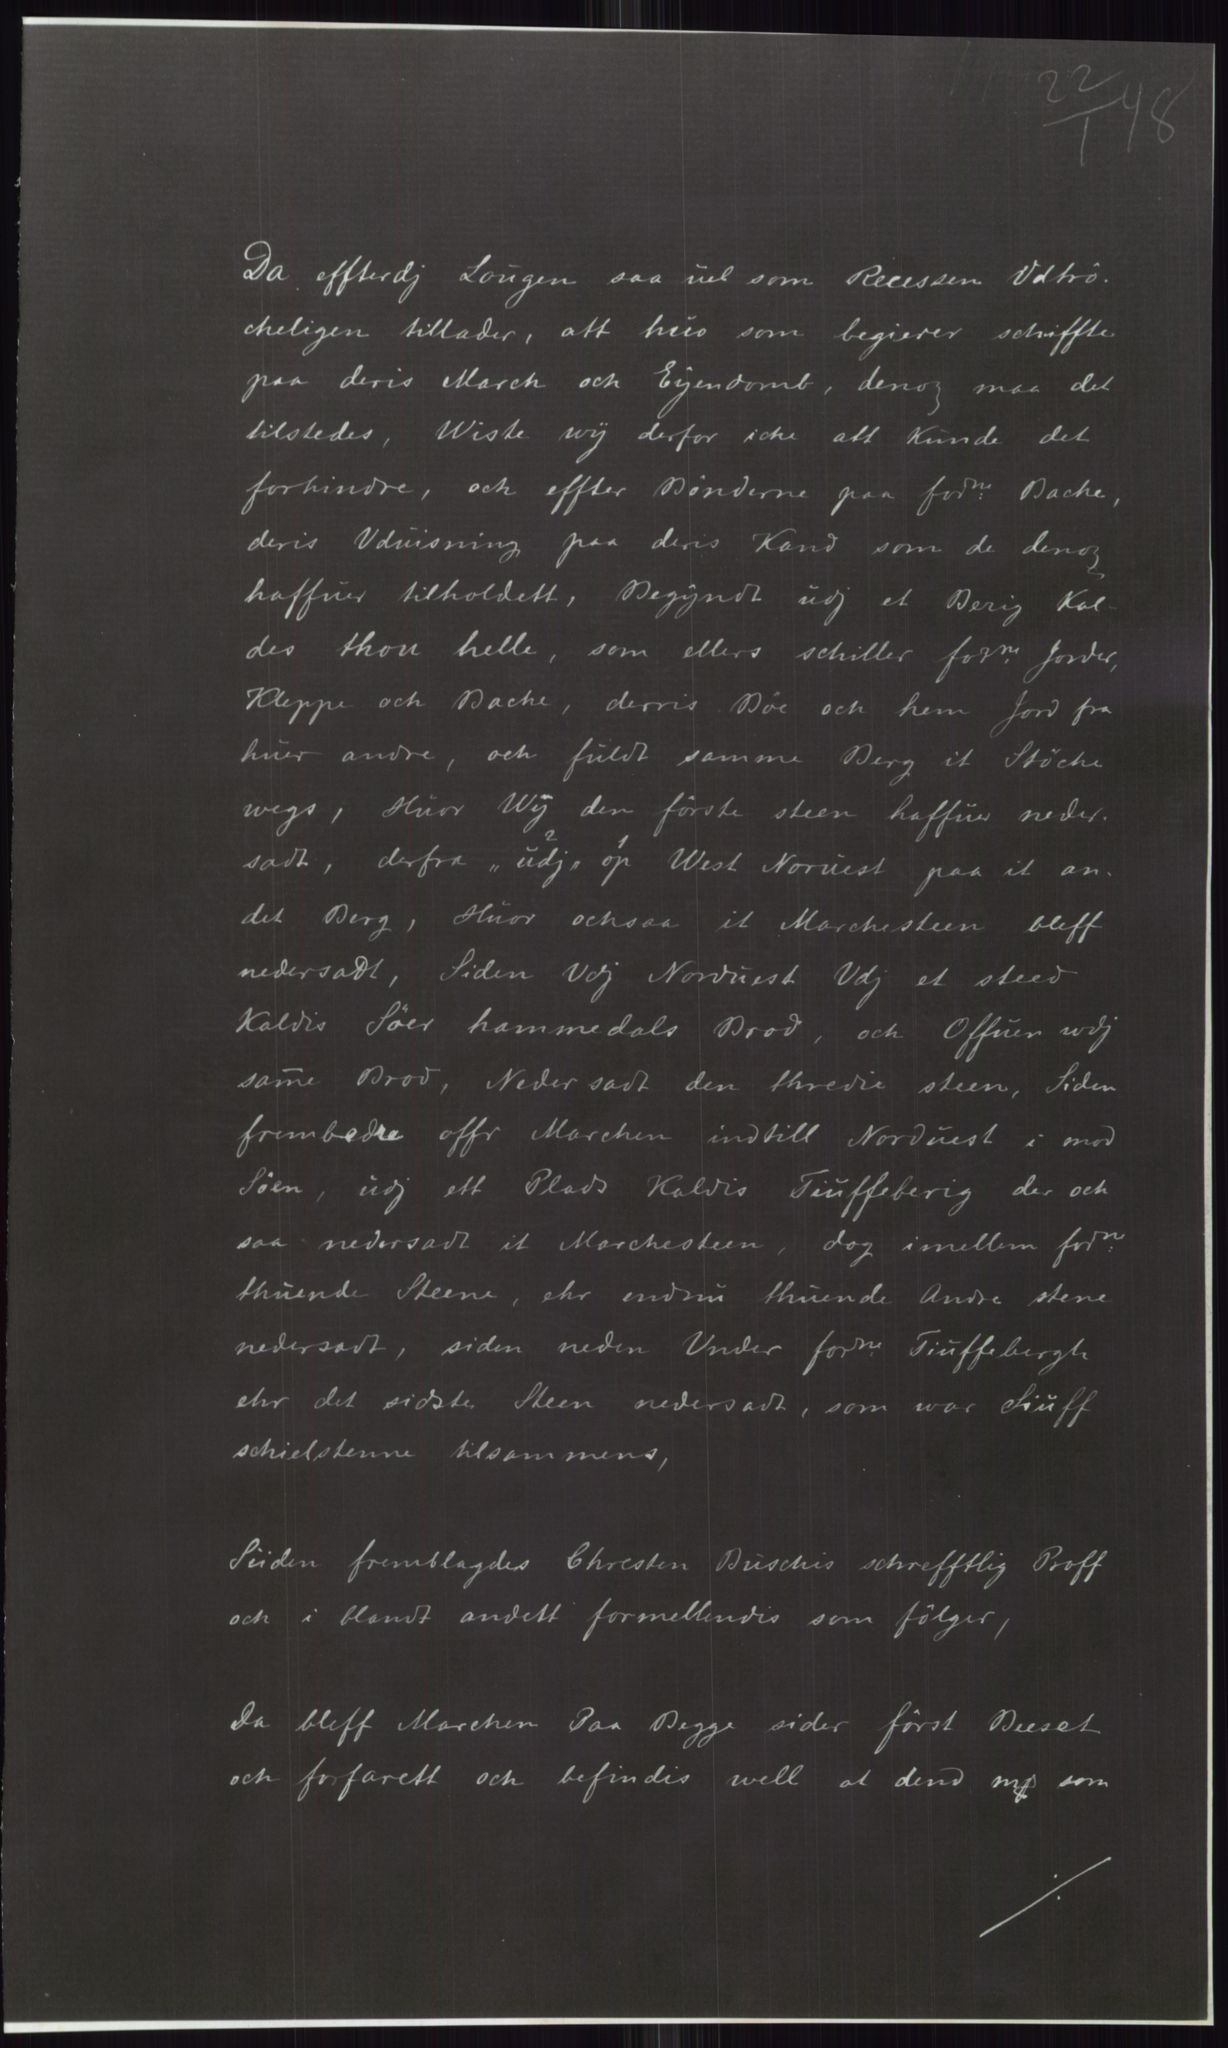 22/1 48
Da effterdj Lougen saa uel som Recessen Vdtrö-
cheligen tillader, att huo som begierer schiffte
paa deris March och Eÿendomb, denog maa det
tilstedes, Wiste wÿ derfor iche att kunde det
forhindre, och effter Bönderne paa fordne: Bache,
deris Vduisning paa deris Kand som de denog
haffuer tilholdett, Begÿndt udj et Berig Kal-
des thou helle, som ellers schiller fordne: Jorder,
Kleppe och Bache, derris Böe och hem Jord fra
huer andre, och fuldt samme Berg it Stöche
wegs, Huor Wÿ den förste steen haffuer neder-
sadt, derfra „udj„ 2 op 1 West Noruest paa it an-
det Berg, Huor ochsaa it Marchesteen bleff
nedersadt, Siden Vdj Norduest Vdj et steed
Kaldis Söer hammedals Brod, och Offuen wdj
same Brod, Neder sadt den thredie steen, Siden
frembedre offr Marchen indtill Norduest i mod
Söen, udj ett Plads Kaldis Tiuffeberig der och
saa nedersadt it Marchesteen, dog imellem fordne:
thuende Steene, ehr endnu thuende Andre stene
nedersadt, siden neden Vnder fordne: Tiuffebergh
ehr det sidste Steen nedersadt, som war Siuff
schielstenne tilsammens,
Siiden fremblagdes Chresten Buschis schrefftlig Proff
och i blandt andett formellendis som fölger,
Da bleff Marchen Paa Begge sider först Beeset
och forfarett och befindis well at dend som
./.